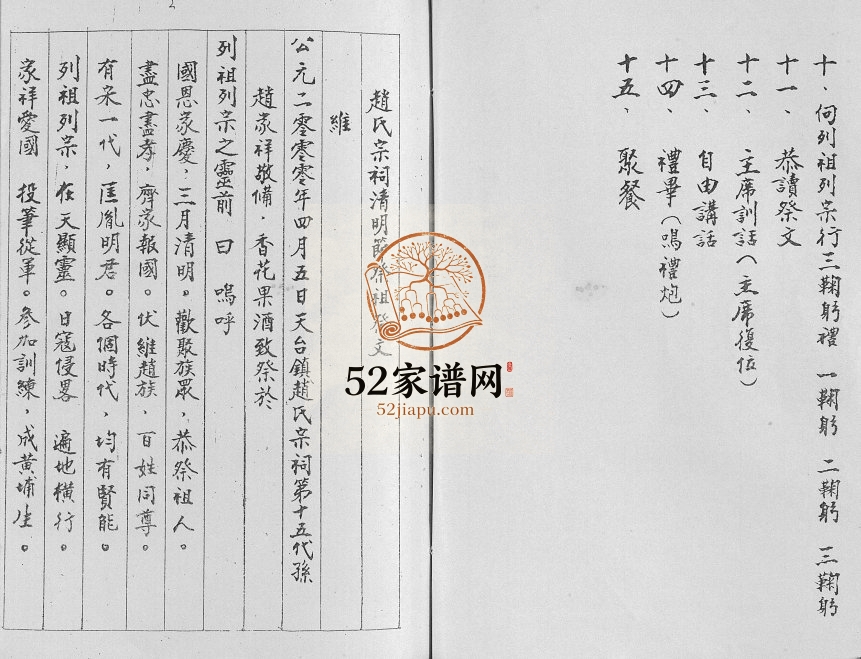 十、向列祖列宗行三鞠躬禮 一鞠躬 二鞠躬 三鞠躬
十一、恭讀祭文
十二、主席訓話(主席復位)
十三、自由講話
十四、禮畢(鳴禮炮)
十五、聚餐
趙氏宗祠清明節祭祖祭文
維
公元二零零零年四月五日天台鎮趙氏宗祠第十五代孫
趙家祥敬備,香花果酒致祭於
列祖列宗之靈前 曰 嗚呼
國恩家慶,三月清明。歡聚族眾,恭祭祖人。
盡忠盡孝,齊家報國。伏維趙族,百姓同尊。
有宋一代,匡胤明君。各個時代,均有賢能。
列祖列宗,在天顯靈。日寇侵畧 遍地橫行。
家祥愛國 投筆從軍。參加訓練,成黃埔生。
52家谱网
52jiapu.com
2